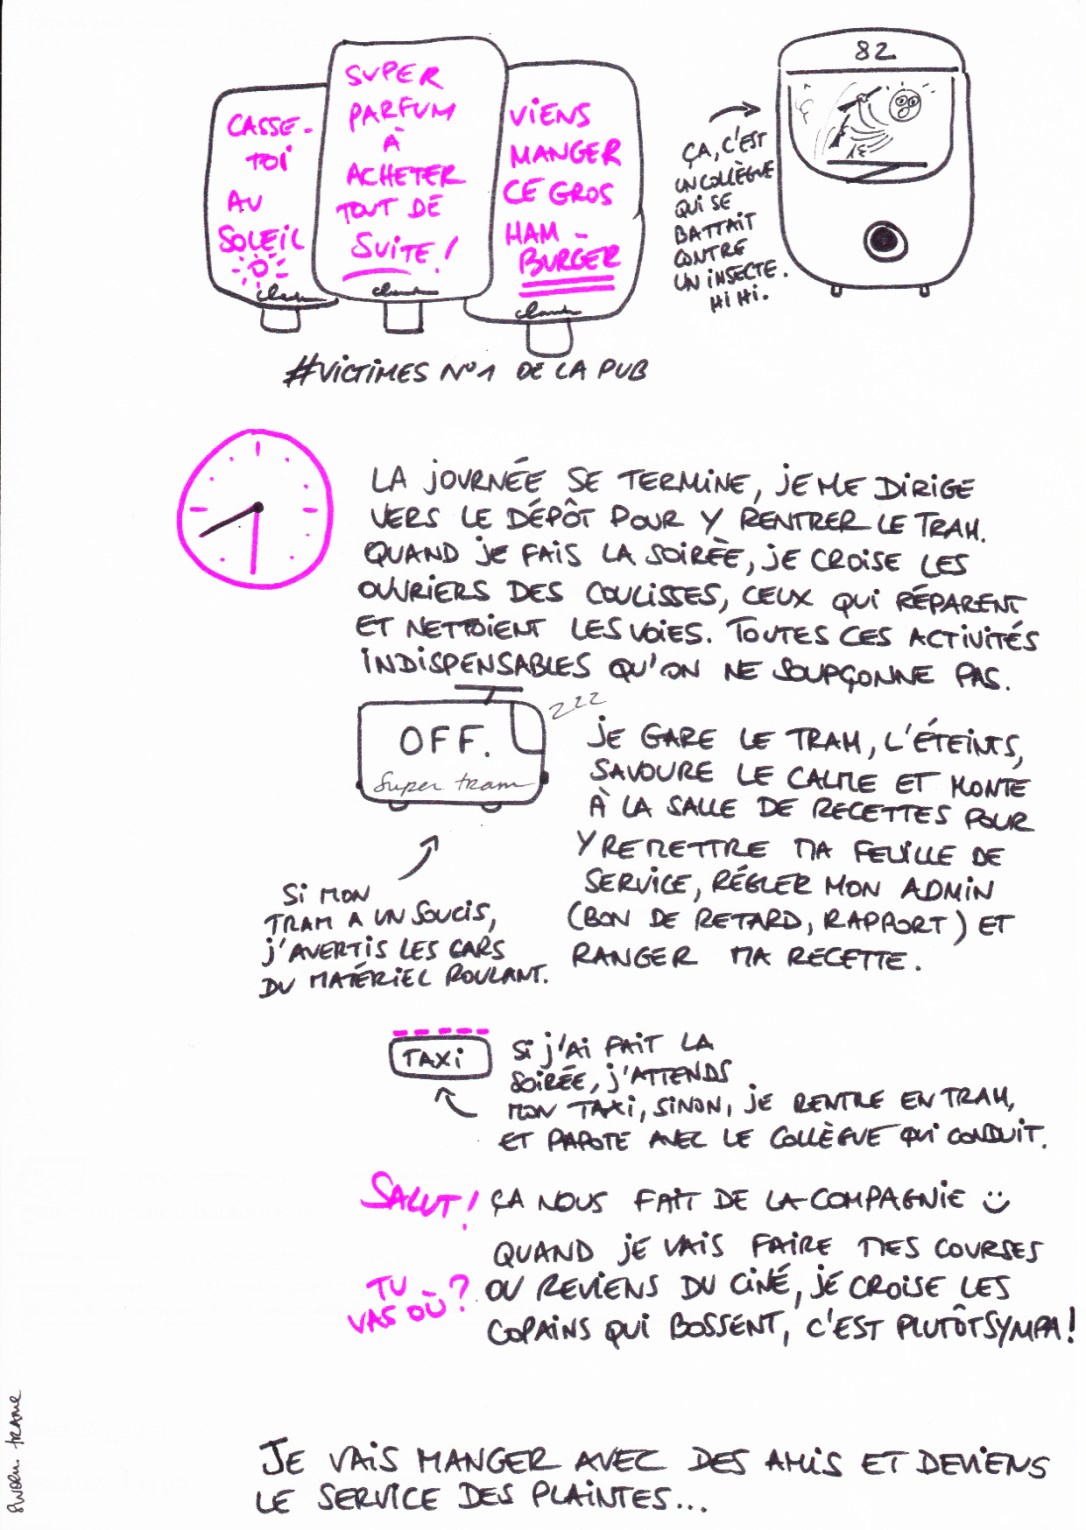 CASSE-
TOI
AU
SOLEIL
SUPER
PARFUM
À
ACHETER
TOUT DE
SUITE !
VIENS
MANGER
CE GROS
HAM-
BURGER
#VICTIMES N°1 DE LA PUB
82
ÇA, C'EST
UN COLLÈGUE
QUI SE
BATTAIT
CONTRE
UN INSECTE.
HI HI.
LA JOURNÉE SE TERMINE, JE ME DIRIGE
VERS LE DÉPÔT POUR Y RENTRER LE TRAM.
QUAND JE FAIS LA SOIRÉE, JE CROISE LES
OUVRIERS DES COULISSES, CEUX QUI RÉPARENT
ET NETTOIENT LES VOIES. TOUTES CES ACTIVITÉS
INDISPENSABLES QU'ON NE SOUPÇONNE PAS.
OFF.
Super tram
ZZZ
JE GARE LE TRAM, L'ÉTEINTS,
SAVOURE LE CALME ET MONTE
À LA SALLE DE RECETTES POUR
Y REMETTRE MA FEUILLE DE
SERVICE, RÉGLER MON ADMIN
(BON DE RETARD, RAPPORT) ET
RANGER MA RECETTE.
SI MON
TRAM A UN SOUCIS,
J'AVERTIS LES GARS
DU MATÉRIEL ROULANT.
TAXI
SI J'AI FAIT LA
SOIRÉE, J'ATTENDS
MON TAXI, SINON, JE RENTRE EN TRAM,
ET PAPOTE AVEC LE COLLÈGUE QUI CONDUIT.
SALUT! ÇA NOUS FAIT DE LA COMPAGNIE
QUAND JE VAIS FAIRE MES COURSES
TU
VAS OÙ?
OU REVIENS DU CINÉ, JE CROISE LES
COPAINS QUI BOSSENT, C'EST PLUTÔT SYMPA!
JE VAIS MANGER AVEC DES AMIS ET DEVIENS
LE SERVICE DES PLAINTES...